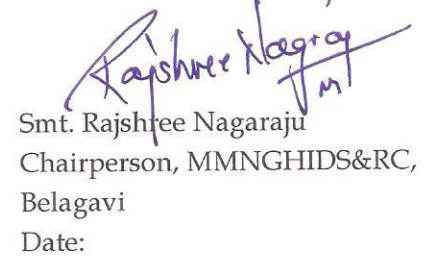 Rajshree Nagraj
Smt. Rajshree Nagaraju
Chairperson, MMNGHIDS&RC,
Belagavi
Date: